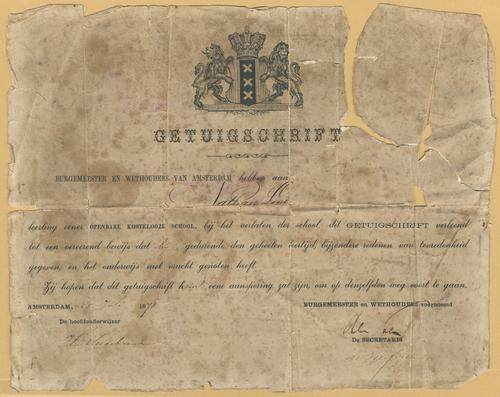 GETUIGSCHRIFT
BURGEMEESTER EN WETHOUDERS VAN AMSTERDAM hebben aan
Nathan
leerling eener OPENBARE KOSTELOOZE SCHOOL, bij het verlaten der school, dit GETUIGSCHRIFT verleend
tot een vereerend bewijs dat hij, gedurende den geheelen leertijd, bijzondere redenen van tevredenheid
gegeven, en het onderwijs met vrucht genoten heeft.
Zij hopen dat dit getuigschrift hem eene aansporing zal zijn, om op denzelfden weg voort te gaan.
AMSTERDAM, 187
BURGEMEESTER EN WETHOUDERS voornoemd
De hoofdonderwijzer
De SECRETARIS